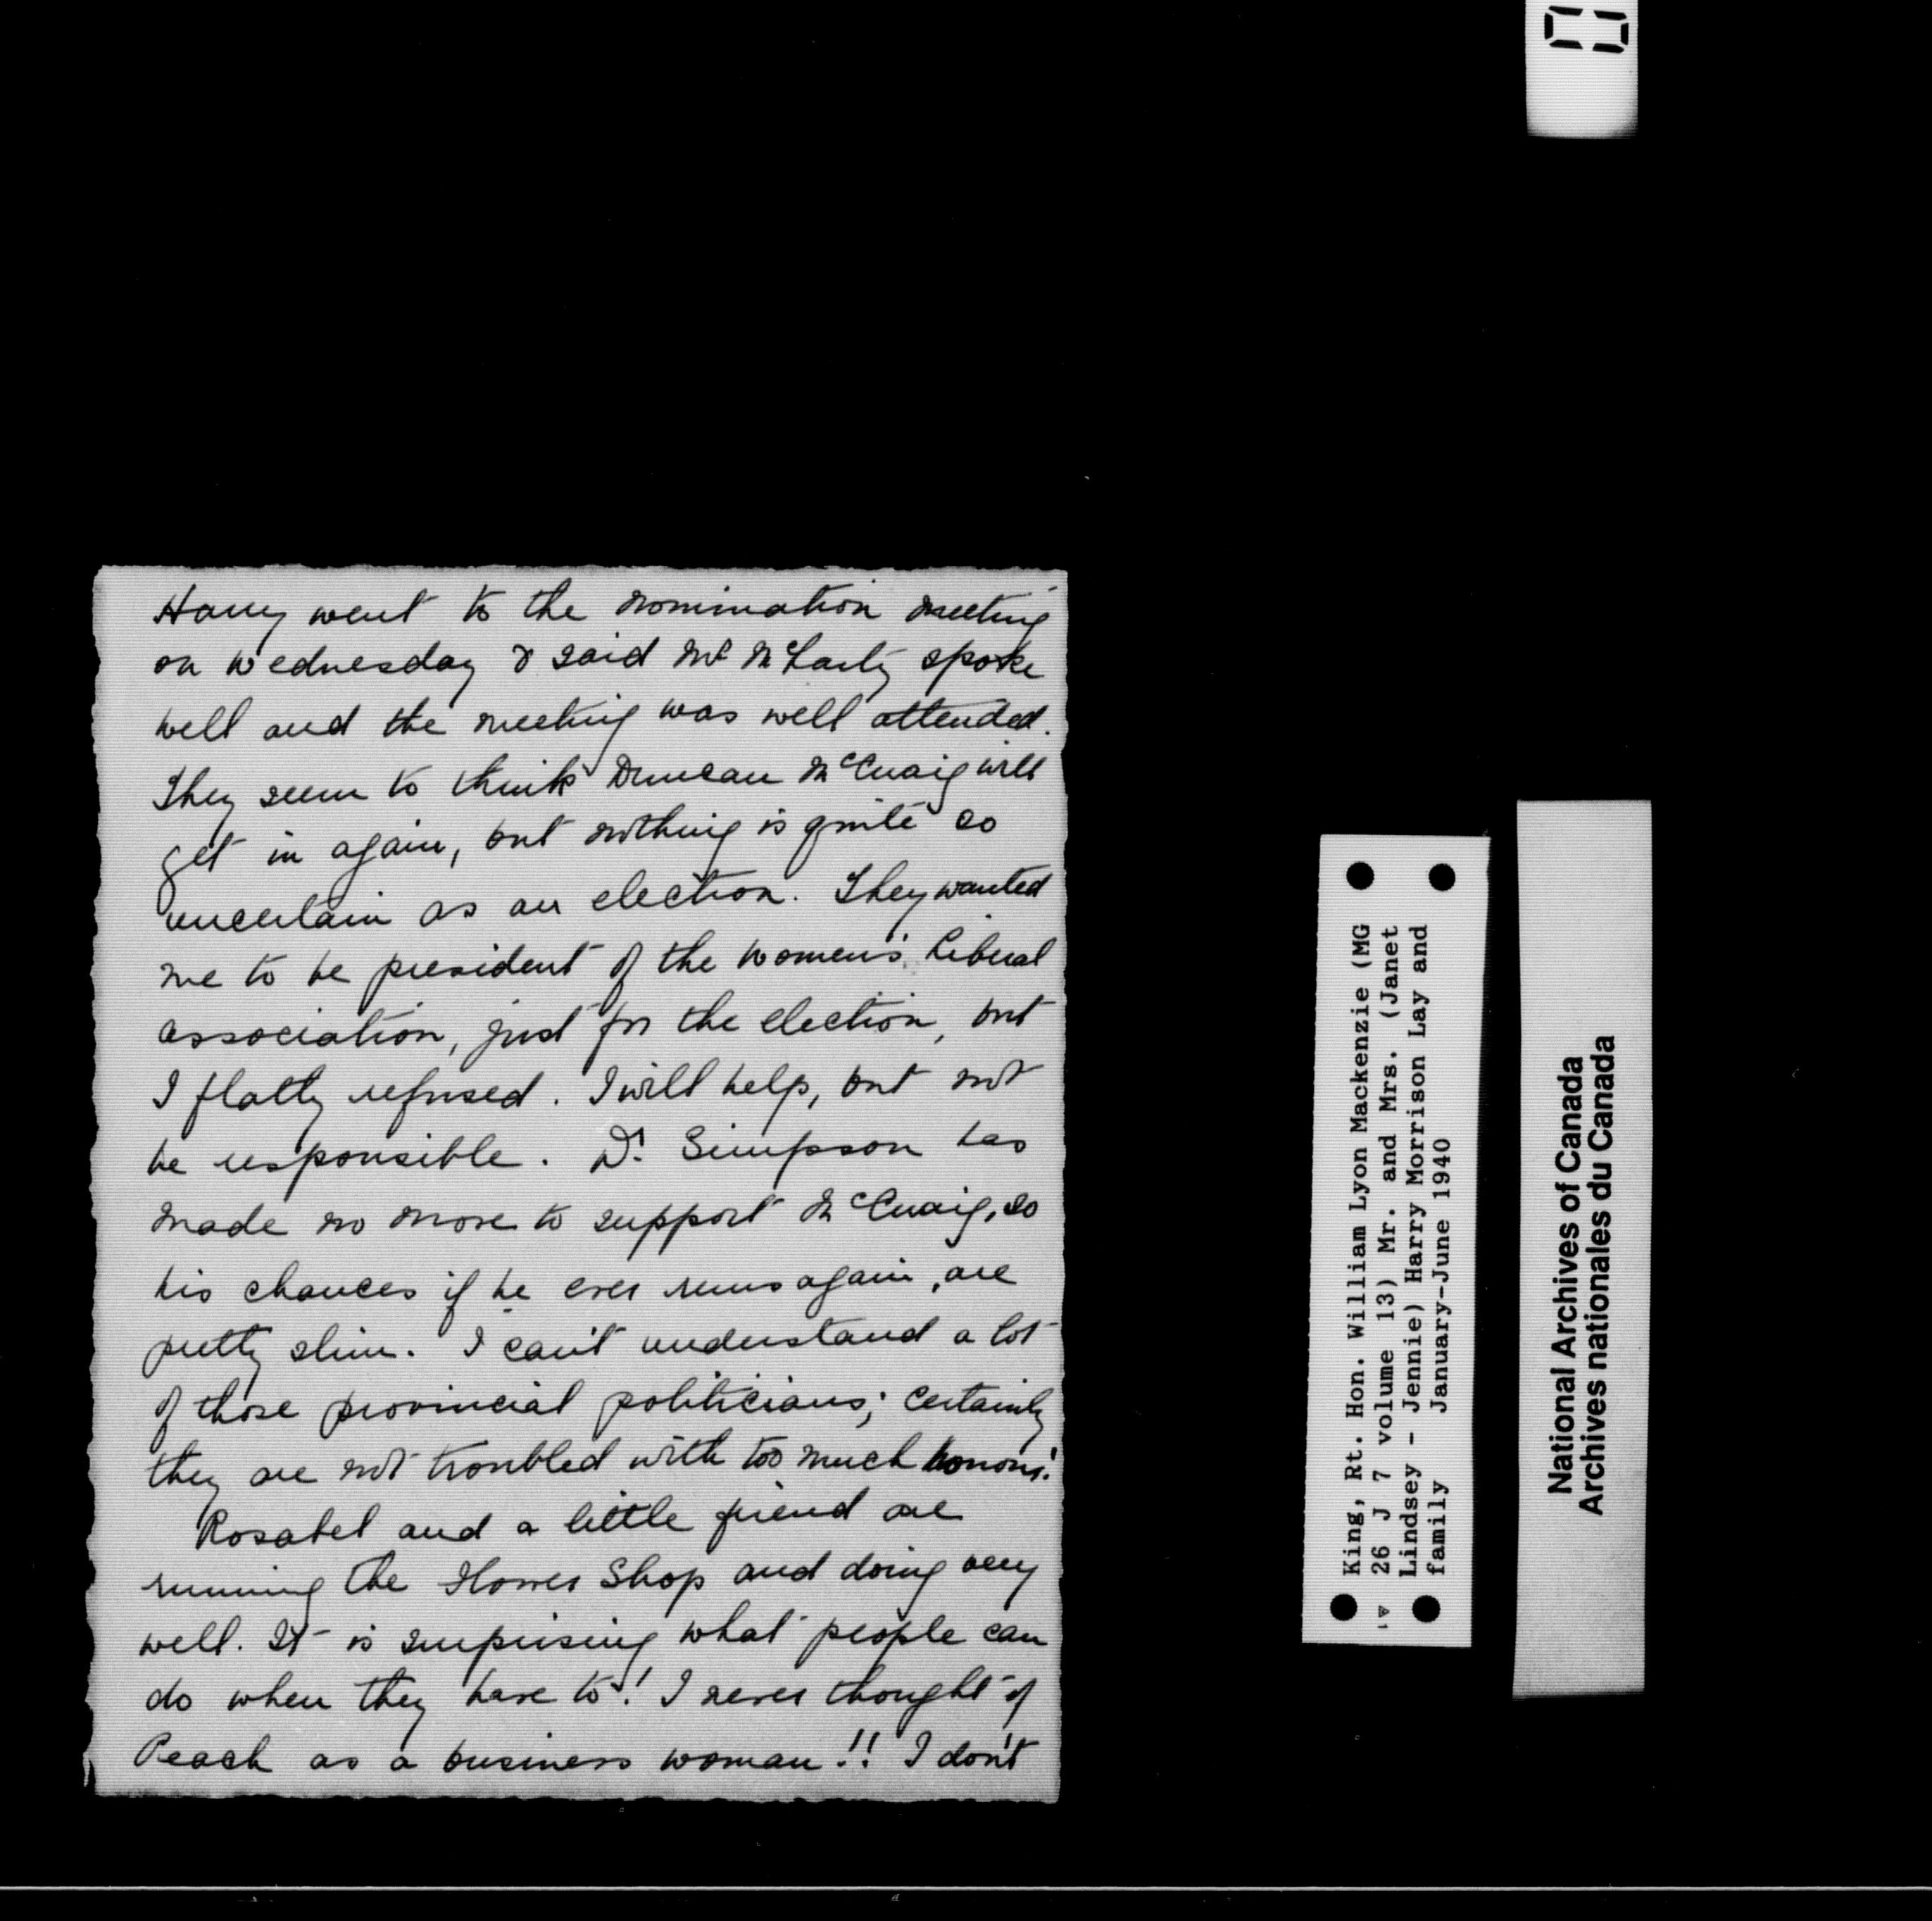 Harry went to the nomination meeting
on Wednesday & said Mr McLarty spoke
well and the meeting was well attended.
They seem to think Duncan McCuaig will
get in again, but nothing is quite so
uncertain as an election. They wanted
me to be president of the women's Liberal
association, just for the election, but
I flatly refused. I will help, but not
be responsible. Dr. Simpson has
made no move to support McCuaig, so
his chances if he ever runs again, are
pretty slim. I can't understand a lot
of those provincial politicians; certainly
they are not troubled with too much honour!
Rosabel and a little friend are
running the Flower Shop and doing very
well. It is surprising what people can
do when they have to! I never thought of
Peach as a business woman!! I don't
King, Rt. Hon. William Lyon Mackenzie (MG
26 J 7 volume 13) Mr. and Mrs. (Janet
Lindsey - Jennie) Harry Morrison Lay and
family January-June 1940
National Archives of Canada
Archives nationales du Canada